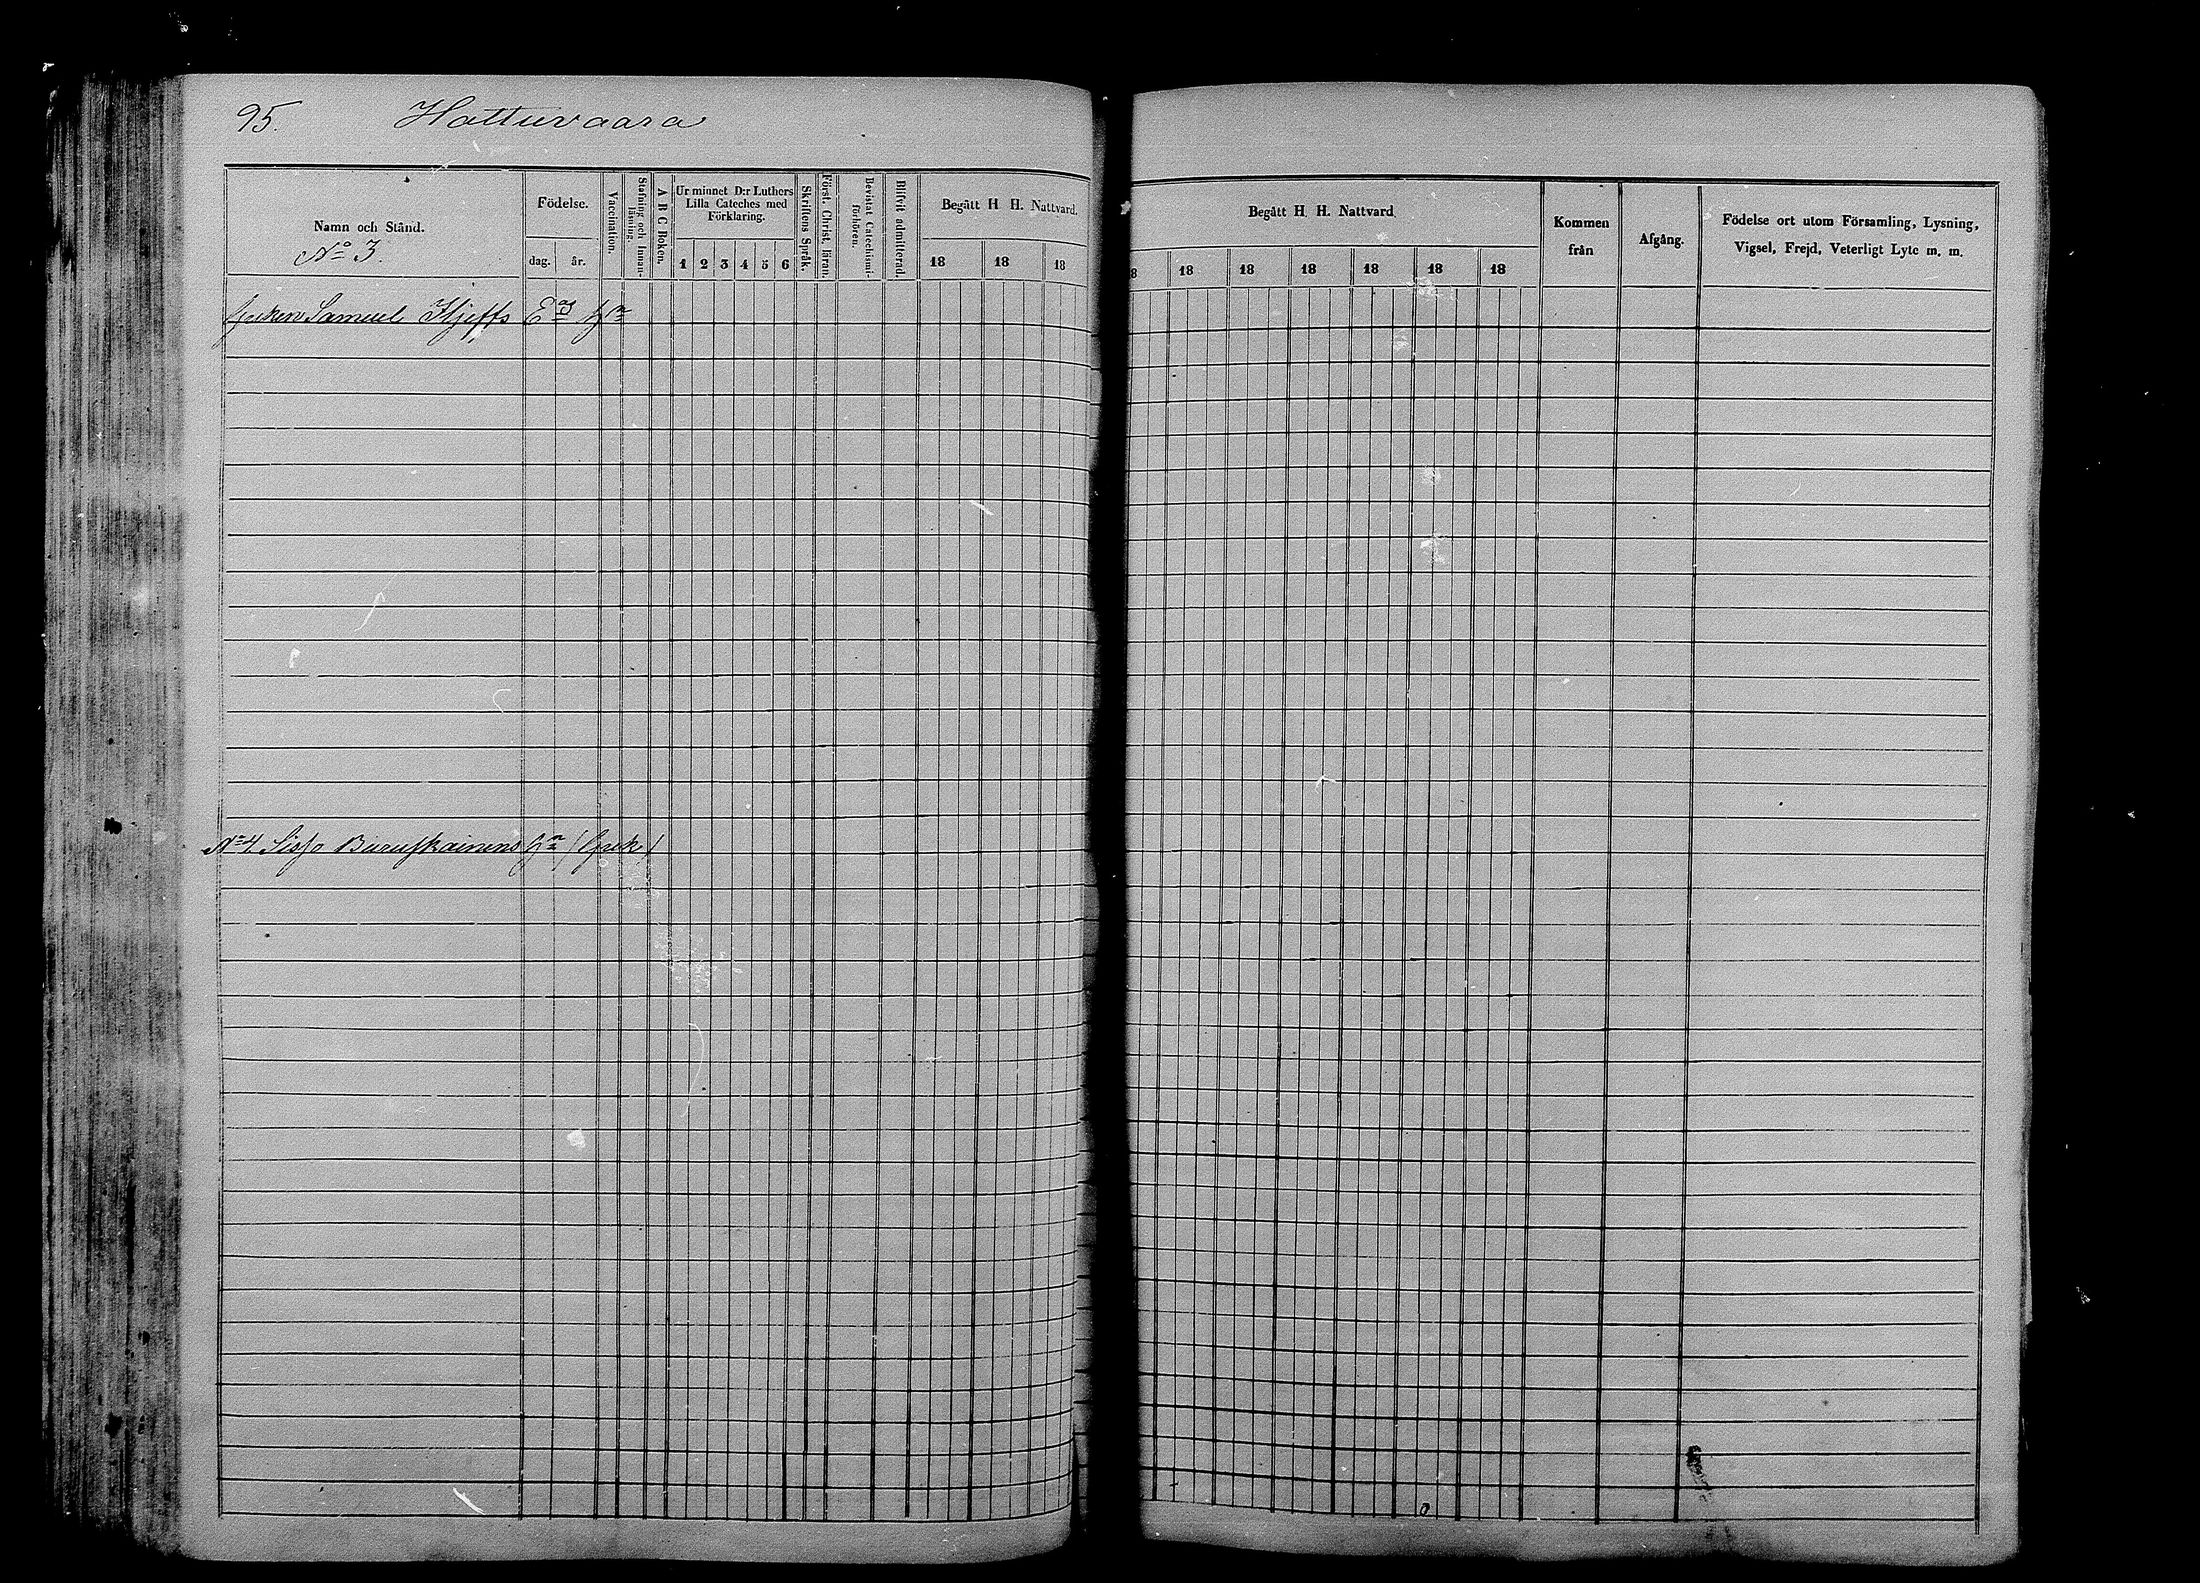 95. Hattuvaara
Namn och Stånd.
Nº 3.
Födelse.
dag. år.
Vaccination.
Stafning och Innan-läsning.
A B C Boken.
Ur minnet D:r Luthers Lilla Cateches med Förklaring.
1 2 3 4 5 6
Skriftens Språk.
Först. Christ. läran.
Bevistat Catechismi-förhören.
Blifvit admitterad.
Begått H H. Nattvard.
18 18 18
Samuel Kjeffs
Nº 4. Sisso
Begått H. H. Nattvard
8 18 18 18 18 18 18
Kommen från
Afgång.
Födelse ort utom Församling, Lysning, Vigsel, Frejd, Veterligt Lyte m. m.